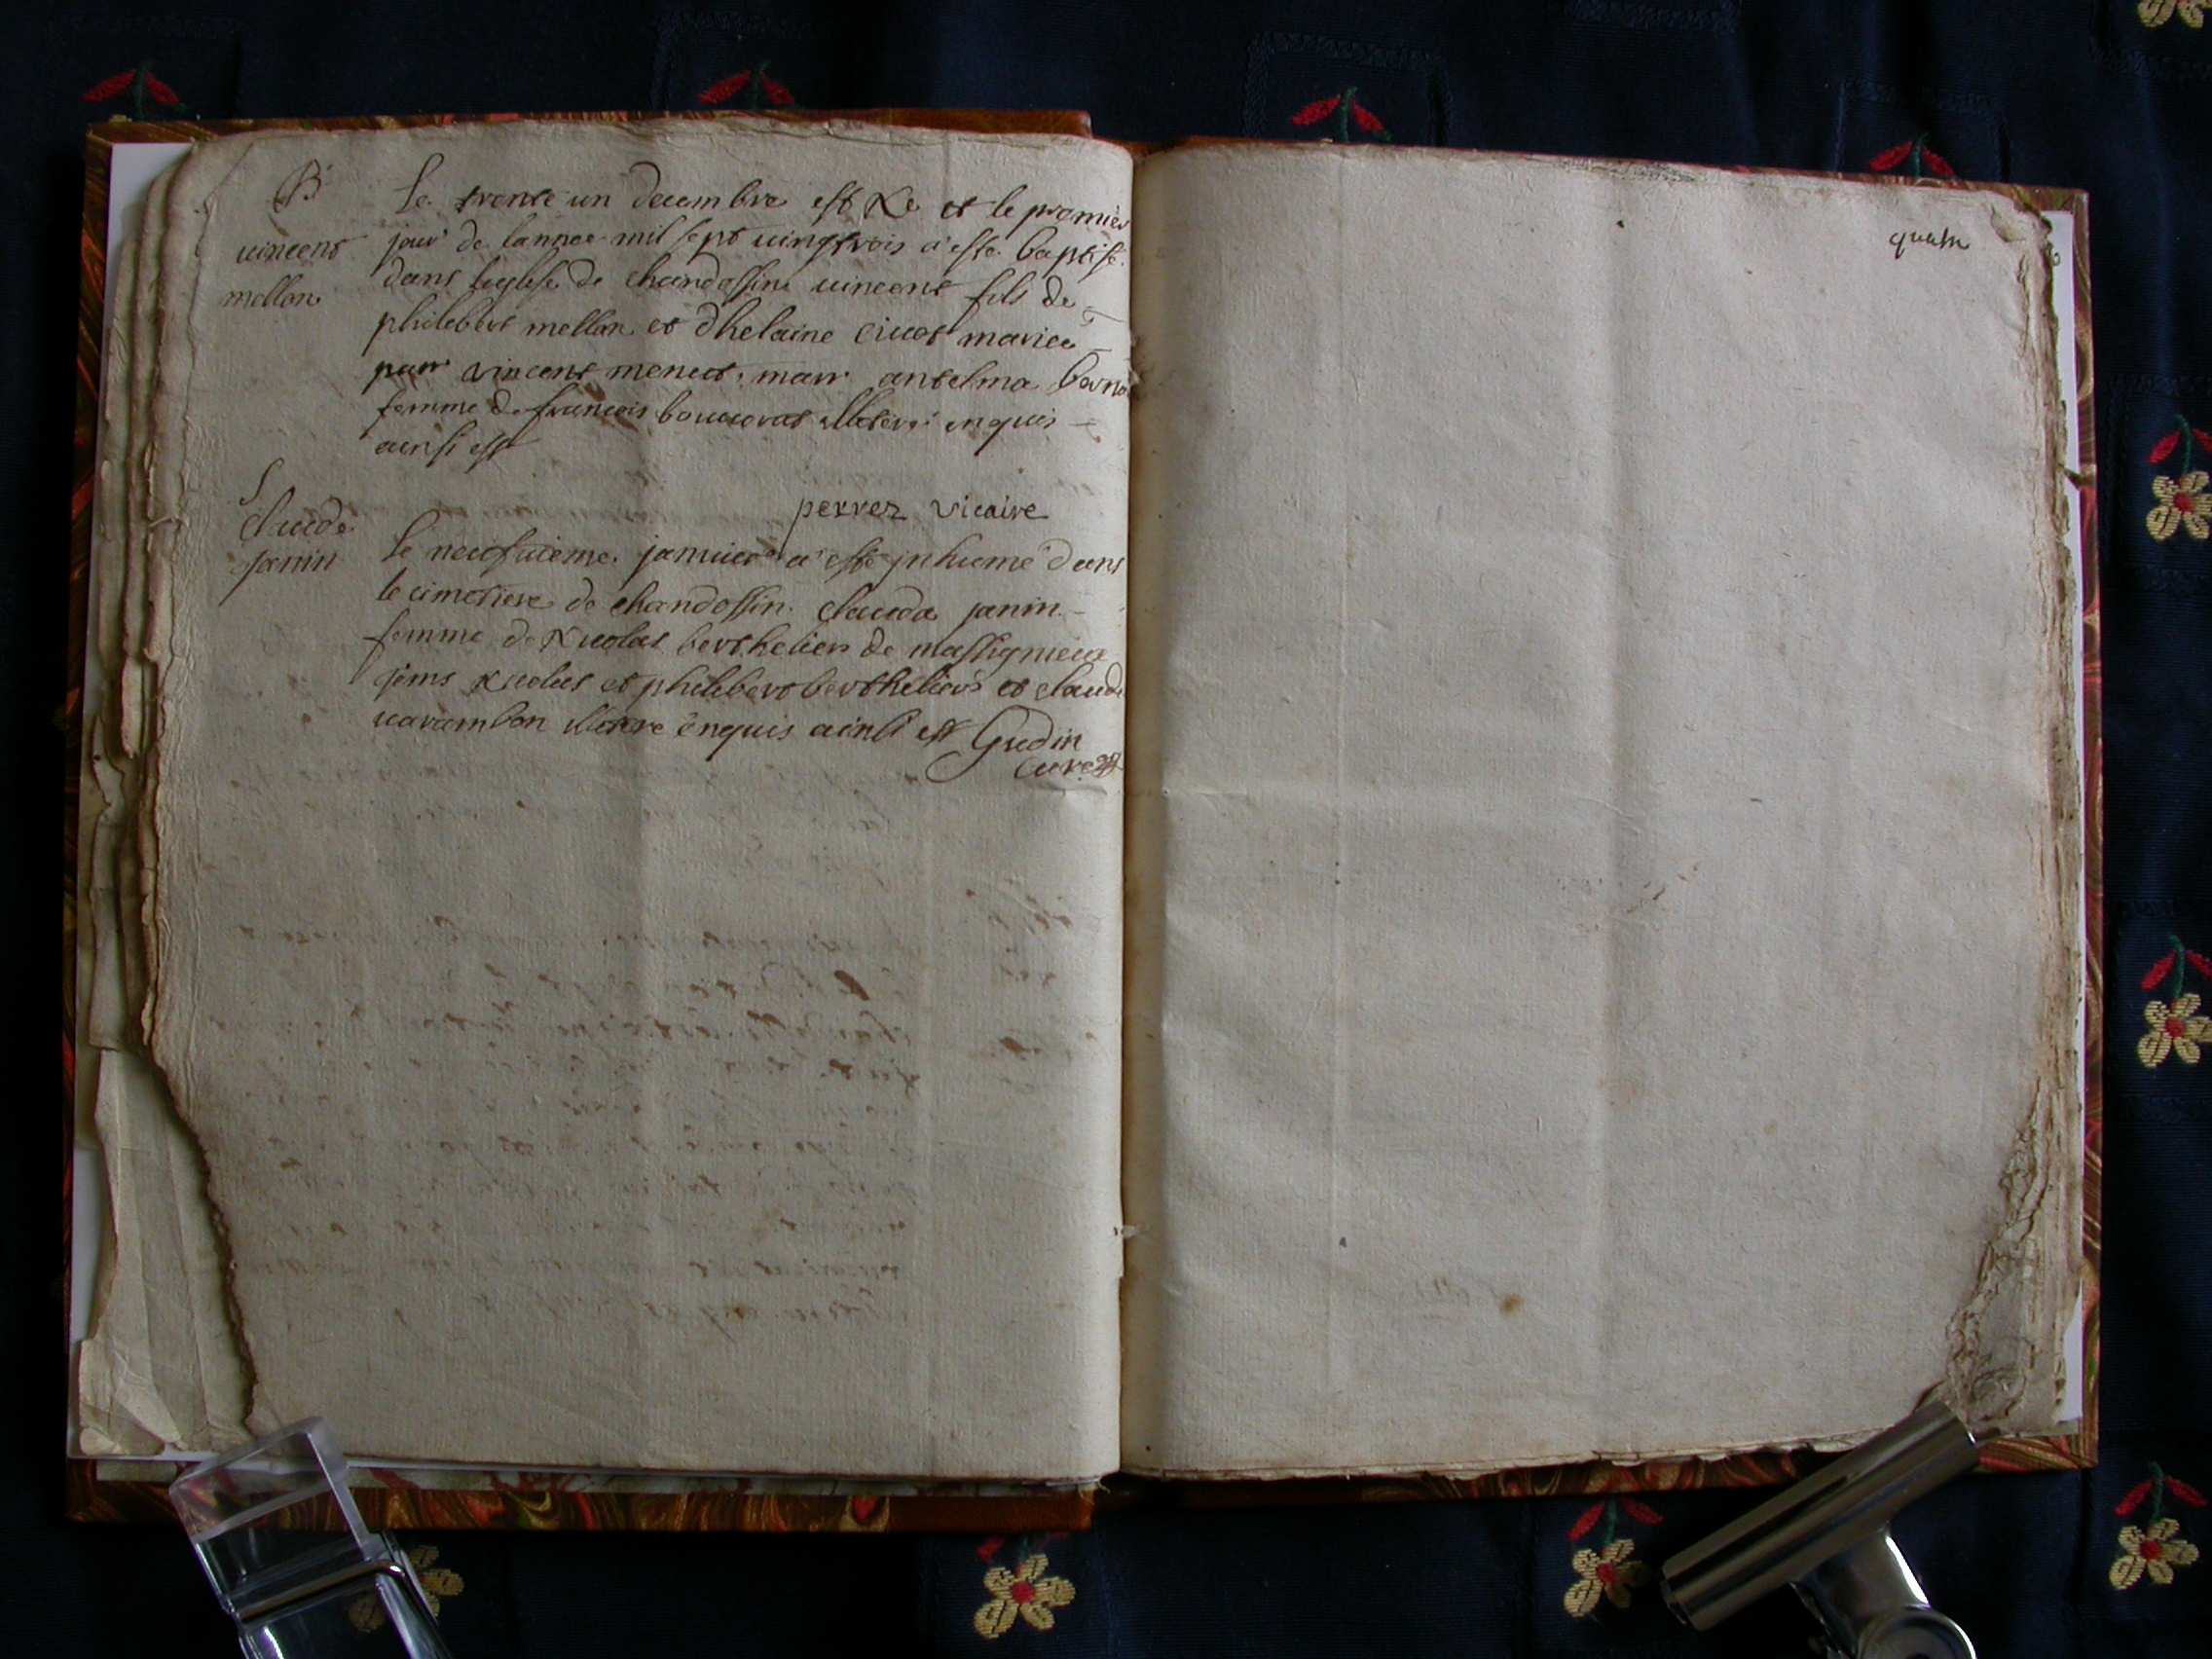 B
vincent
mellon
Le trente un decembre est Ne et le premier
jour de lannee mil sept vingtrois a este baptisé
dans leglise de chandossin vincent fils de
philebert mellon et dhelaine mariee
parr vincent menut marr anselma
femme de francois bouverat illiteré enquis
ainsi est
perrez vicaire
S
Claude
janin
le neufvieme janvier a esté inhumé dans
le cimetiere de chandossin clauda janin
femme de Nicolas berthelier de massignieux
pins Nicolas et philebert bertheliers et claude
varambon illitere enquis ainsi est Gudin
Curé